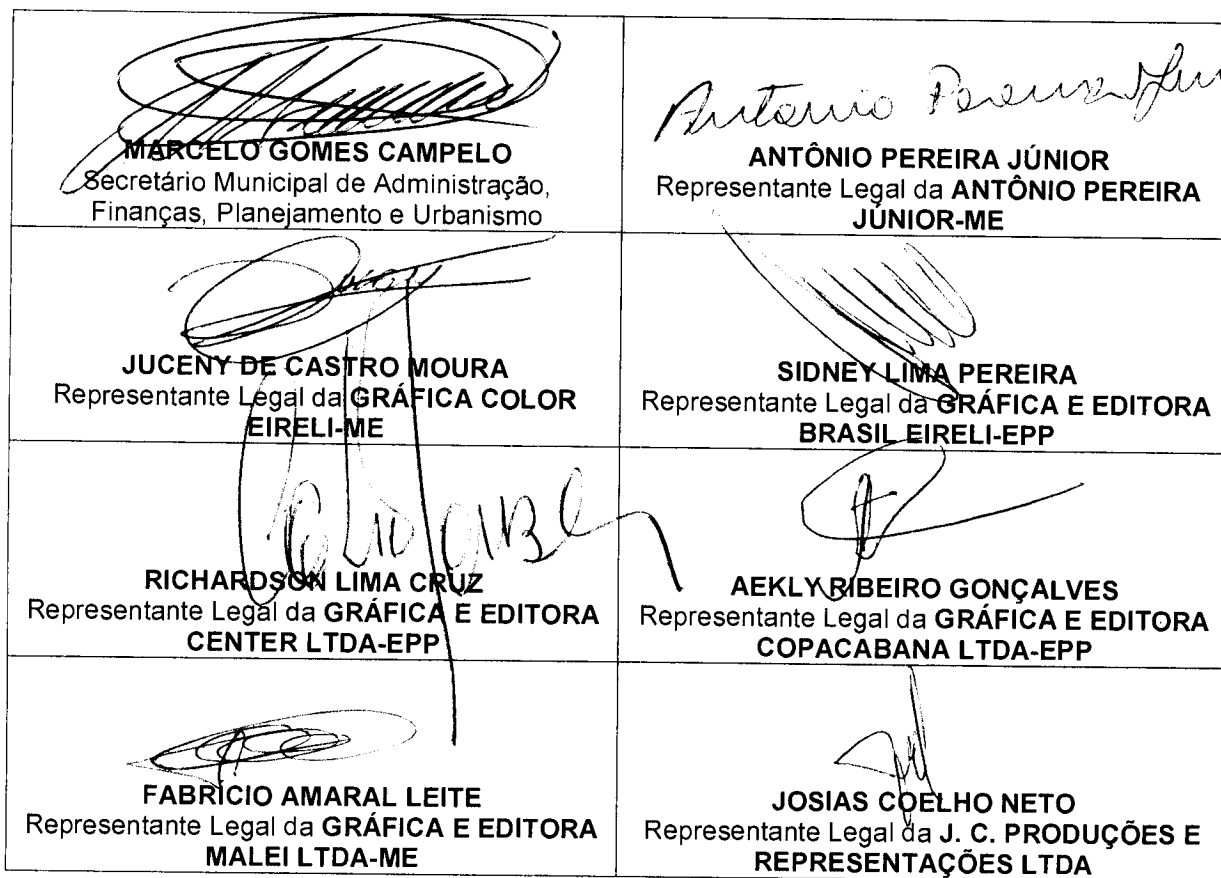 Antonio Pereira Jun
MARCELO GOMES CAMPELO
Secretário Municipal de Administração,
Finanças, Planejamento e Urbanismo
ANTÔNIO PEREIRA JÚNIOR
Representante Legal da ANTÔNIO PEREIRA
JÚNIOR-ME
JUCENY DE CASTRO MOURA
Representante Legal da GRÁFICA COLOR
EIRELI-ME
SIDNEY LIMA PEREIRA
Representante Legal da GRÁFICA E EDITORA
BRASIL EIRELI-EPP
RICHARDSON LIMA CRUZ
Representante Legal da GRÁFICA E EDITORA
CENTER LTDA-EPP
AEKLY RIBEIRO GONÇALVES
Representante Legal da GRÁFICA E EDITORA
COPACABANA LTDA-EPP
FABRÍCIO AMARAL LEITE
Representante Legal da GRÁFICA E EDITORA
MALEI LTDA-ME
JOSIAS COELHO NETO
Representante Legal da J. C. PRODUÇÕES E
REPRESENTAÇÕES LTDA